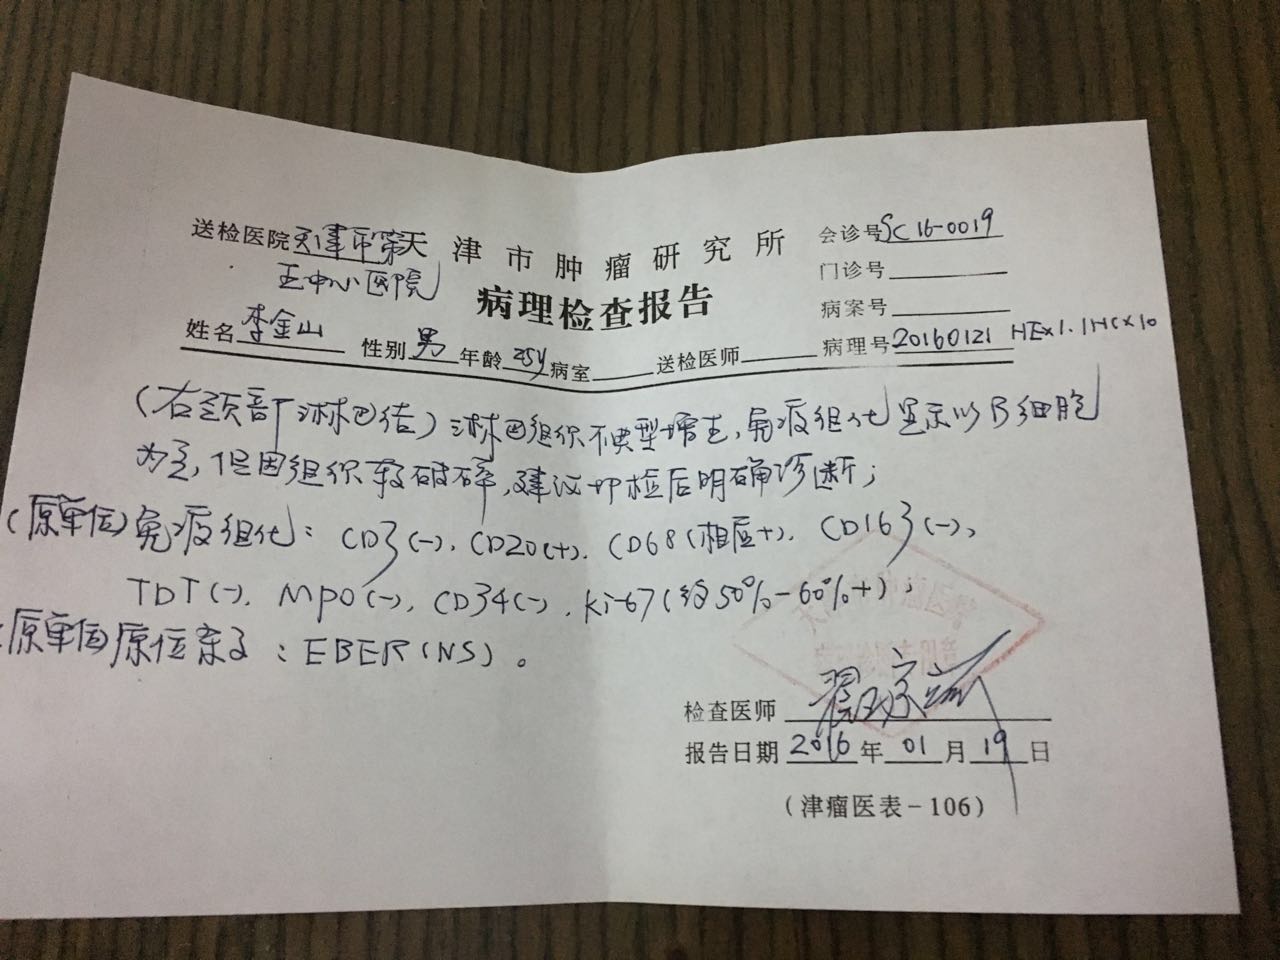 送检医院 天津市第
五中心医院
天津市肿瘤研究所
病理检查报告
会诊号 SC16-0019
门诊号
病案号
姓名 李金山 性别 男 年龄 25y 病室 送检医师 病理号 20160121 HEx1.IHCx10
(右颈部淋巴结)淋巴组织不典型增生,免疫组化显示以B细胞
为主,但因组织较破碎,建议切检后明确诊断;
(原单位)免疫组化:CD3(-),CD20(+),CD68(相应+),CD163(-),
TDT(-),MPO(-),CD34(-),Ki-67(约50%-60%+);
(原单位)原位杂交:EBER(NS)。
检查医师
报告日期 2016 年 01 月 19 日
(津瘤医表-106)